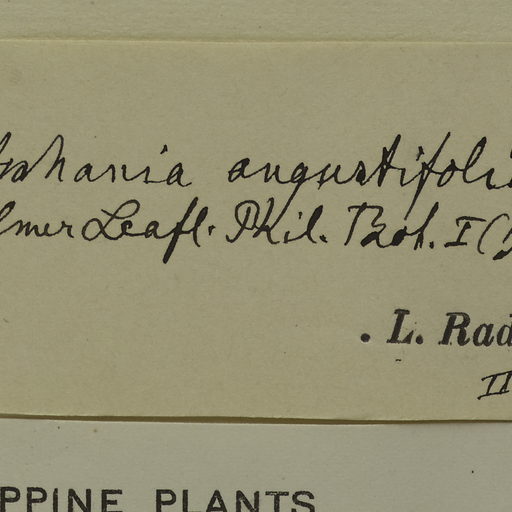 angustifoli
lmer Leafl. Phil. Bot. I (
. L. Rad
II
PPINE PLANTS